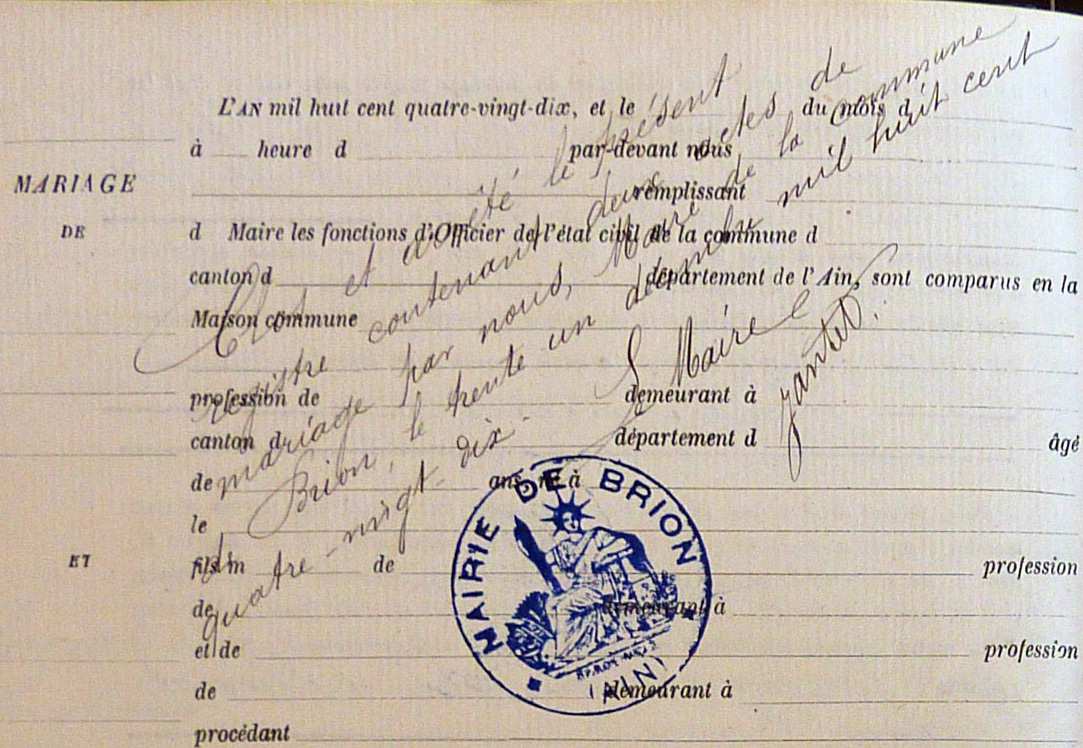 L'AN mil huit cent quatre-vingt-dix, et le du mois d
à heure d par-devant nous
MARIAGE
remplissant
DE
d Maire les fonctions d'Officier de l'état civil de la commune d
canton d département de l'Ain, sont comparus en la
Maison commune
profession de demeurant à
canton d département d âgé
de ans, né à
le
ET
fils m de profession
de demeurant à
et de profession
de demeurant à
procédant
Clos et arrêté le présent
registre contenant deux actes de
mariage par nous, Maire de la commune
Brion, le trente un décembre mil huit cent
quatre-vingt-dix.
Le Maire
MAIRIE DE BRION
(AIN)